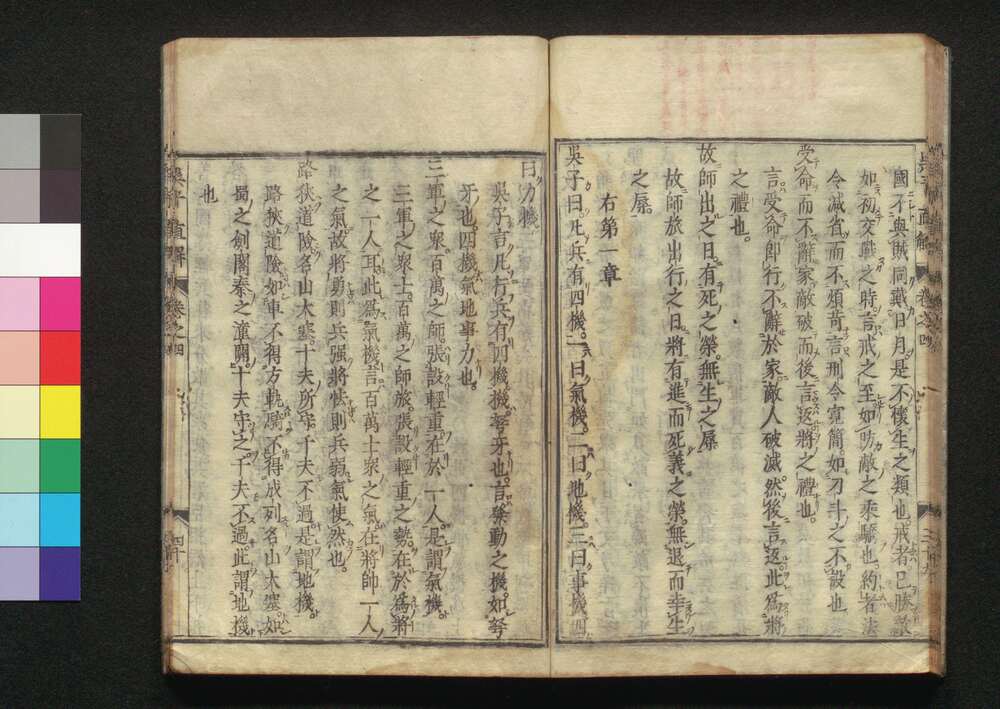 國不與賊同戴日月是不懷生之類也戒者已勝敵
如初交戰之時言戒之至如防敵之乘驕也約者法
令減省而不煩苛言刑令寬簡如刁斗之不設也
受命而不辭家敵破而後言返將之禮也。
言受命即行不辭於家敵人破滅然後言返此爲將
之禮也。
故師出之日有死之榮無生之辱
故師旅出行之日將有進而死義之榮無退而幸生
之辱。
右第一章
吳子曰凡兵有四機。一曰氣機。二曰地機。三曰事機四
曰力機。
吳子言凡行兵有四機機弩牙也言發動之機如弩
牙也四機氣地事力也。
三軍之衆百萬之師。張設輕重在於一人。是謂氣機。
三軍之衆士百萬之師旅張設輕重之勢在於爲將
之一人耳此爲氣機言百萬士衆之氣在將帥一人
之氣故將勇則兵强將怯則兵弱氣使然也。
路狹道險名山大塞。十夫所守。千夫不過。是謂地機。
路狹道險如車不得方軌騎不得成列名山大塞如
蜀之劍閣秦之潼關。十夫守之千夫不過此謂地機
也
吳子直解
卷之四
四十